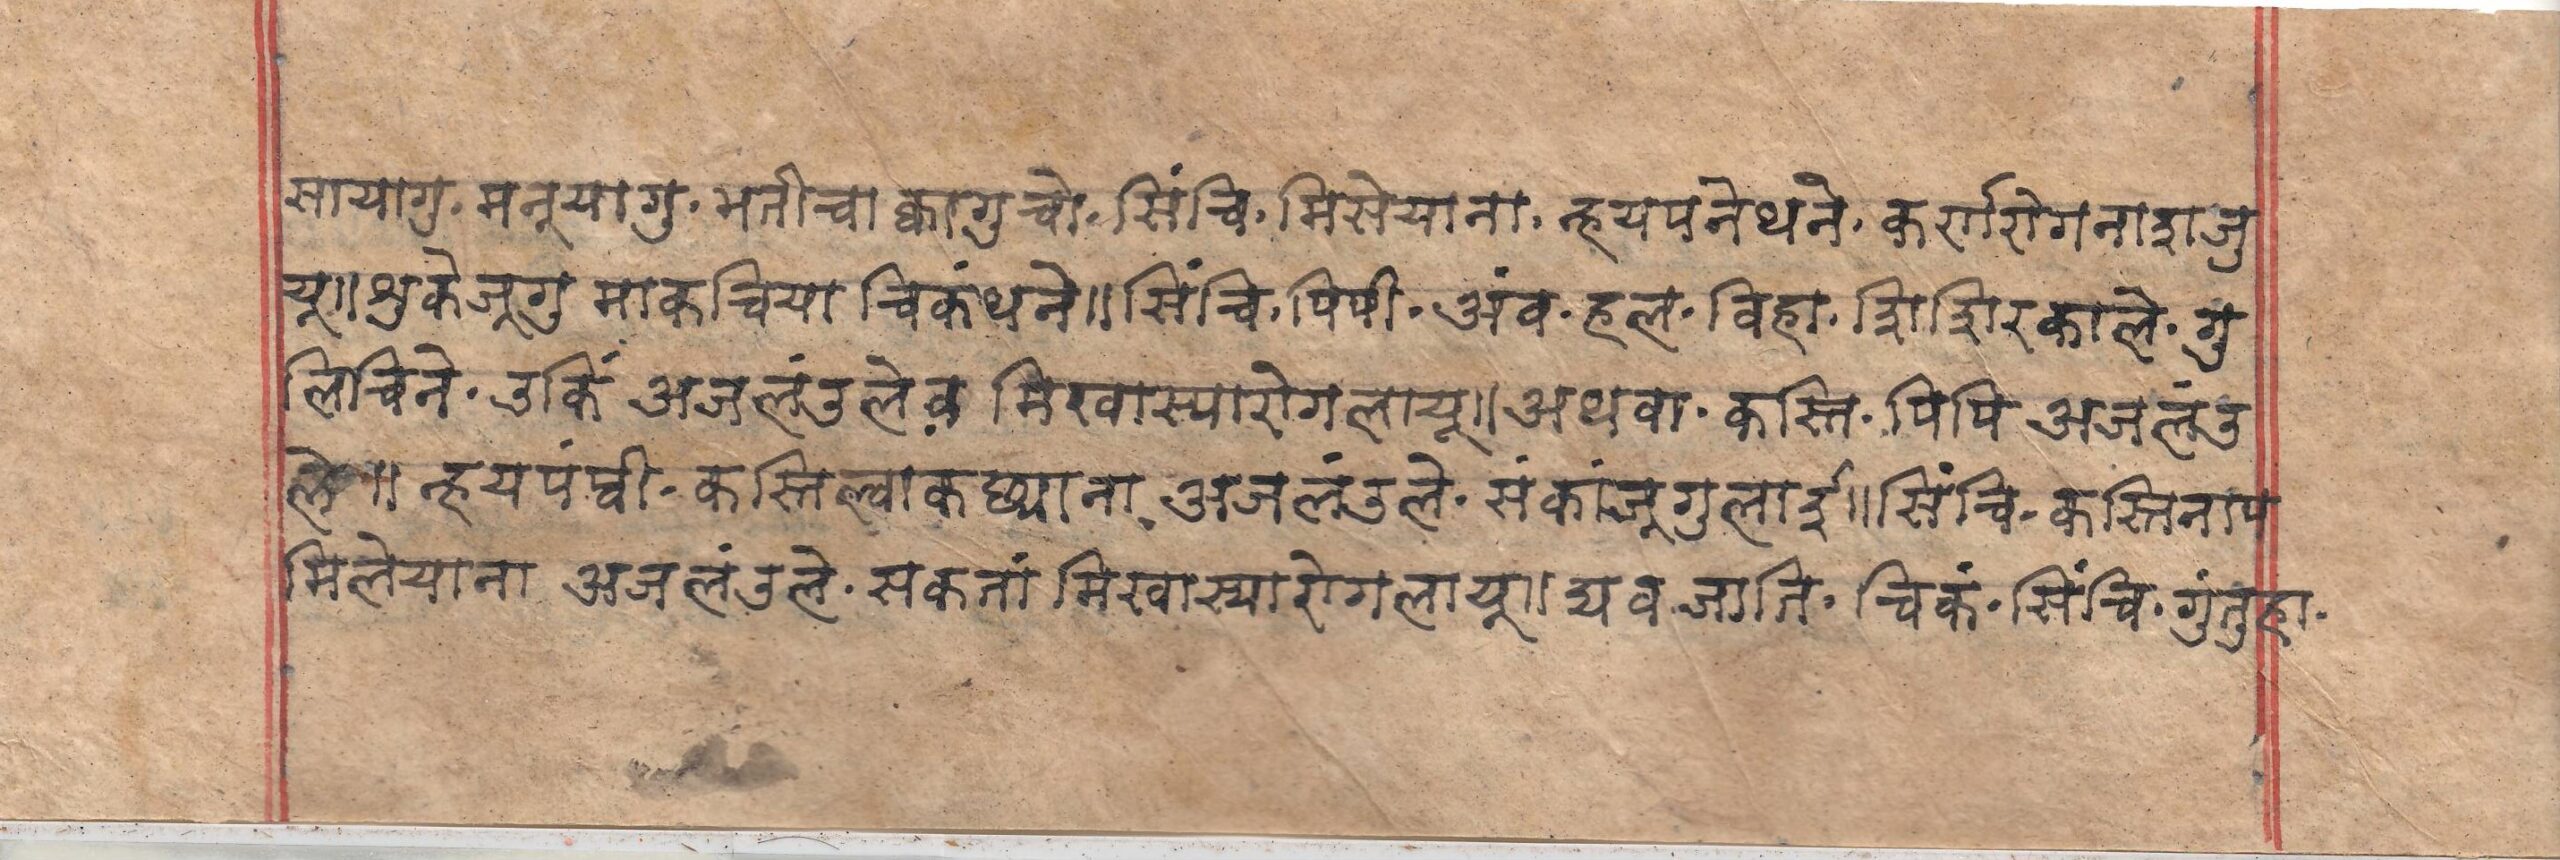 सायागु॰ मनूयागु॰ भतीचा क्वागु चो॰ सिंचि॰ मिसेयाना॰ न्हयपनेथने॰ कर्णरोगनाशजु
यू॥ थुकेजूगु माकचिया चिकंथने॥ सिंचि॰ पिपी॰ अंव॰ हल॰ विहा॰ शिशिरकाले॰ गु
लिचिने॰ उकिं अजलंउलेव मिखास्यारोगलायू॥ अथवा॰ कस्ति॰ पिपि अजलंउ
ले॥ न्हयपंघ्वी॰ कस्तिल्वाकछ्याना अजलंउले॰ संकांजूगुलाई॥ सिंचि॰ कस्तिनाप
मिलेयाना अजलंउले॰ सकतां मिखास्यारोगलायू॥ द्यव जाति॰ चिकं॰ सिंचि॰ गुंतुहा॰